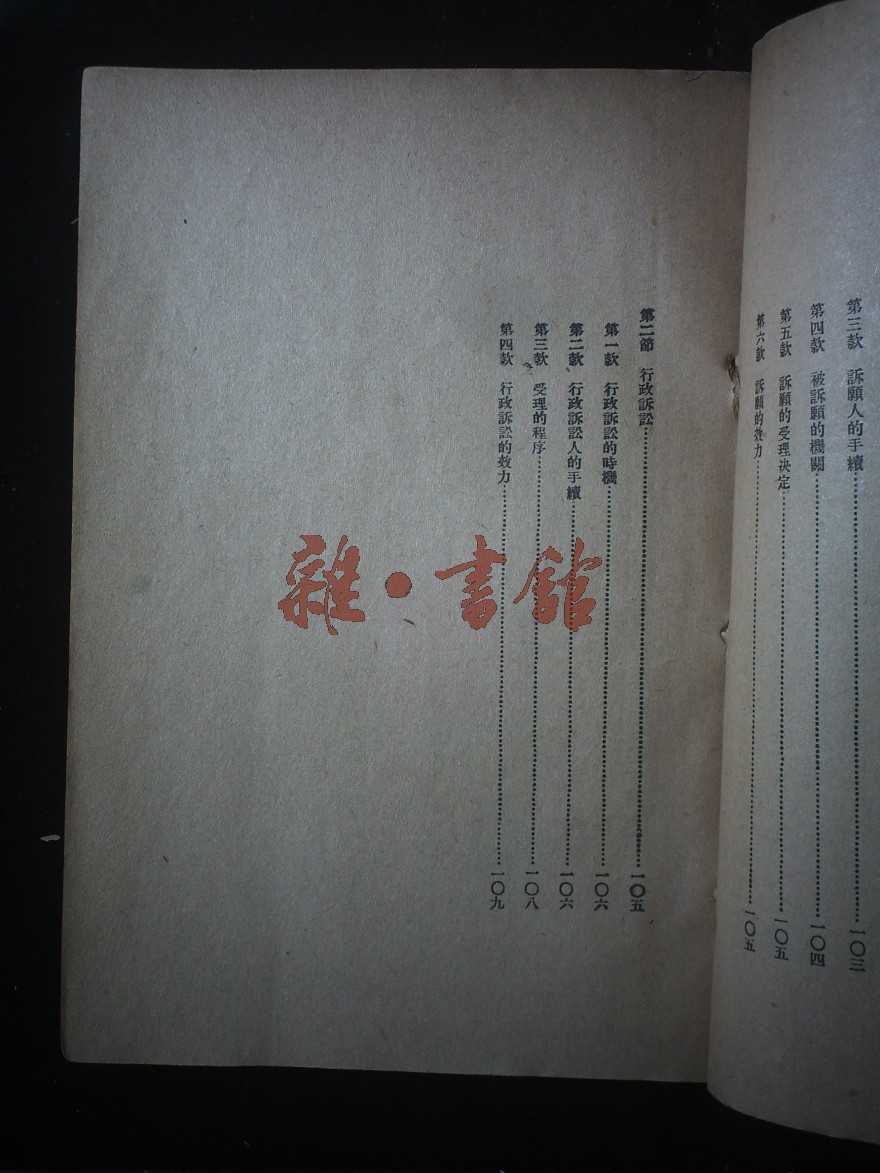 第三款　訴願人的手續…………一〇三
第四款　被訴願的機關…………一〇四
第五款　訴願的受理決定…………一〇五
第六款　訴願的效力…………一〇五
第二節　行政訴訟…………一〇五
第一款　行政訴訟的時機…………一〇六
第二款　行政訴訟人的手續…………一〇六
第三款　受理的程序…………一〇八
第四款　行政訴訟的效力…………一〇九
雜·書館